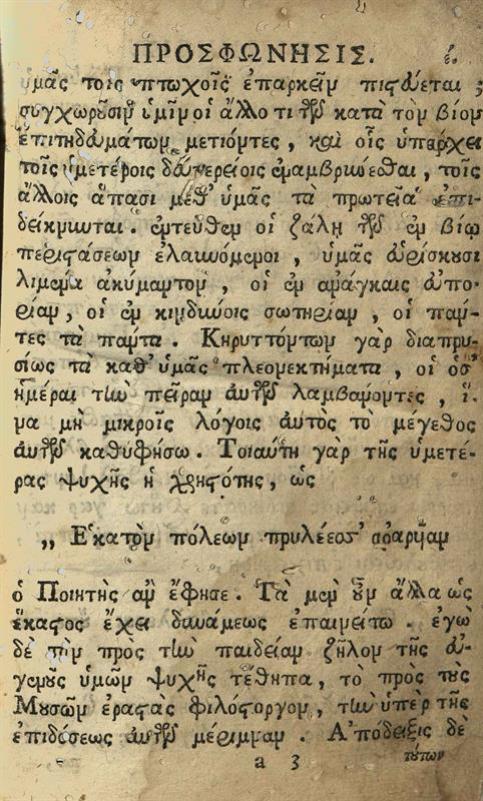 ΠΡΟΣΦΩΝΗΣΙΣ. ε.
ὑμᾶς τοῖς πτωχοῖς ἐπαρκεῖν πιστεύεται ;
συγχωροῦσιν ὑμῖν οἱ ἄλλο τι τῶν κατὰ τὸν βίον
ἐπιτηδευμάτων μετιόντες , καὶ οἷς ὑπάρχει
τοῖς ὑμετέροις ἐναμβρύνεσθαι , τοῖς
ἄλλοις ἅπασι μεθ' ὑμᾶς τὰ πρωτεῖα ἐπι-
δείκνυται . ἐντεῦθεν οἱ ζάλῃ τῶν ἐν βίῳ
περιστάσεων ἐλαυνόμενοι , ὑμᾶς εὑρίσκουσι
λιμένα ἀκύμαντον , οἱ ἐν ἀνάγκαις εὐπο-
ρίαν , οἱ ἐν κινδύνοις σωτηρίαν , οἱ πάν-
τες τὰ πάντα . Κηρυττόντων γὰρ διαπρυ-
σίως τὰ καθ' ὑμᾶς πλεονεκτήματα , οἱ ὁσ'
ἡμέραι τὴν πεῖραν αὐτῶν λαμβάνοντες , ἵ-
να μὴ μικροῖς λόγοις αὐτὸς τὸ μέγεθος
αὐτῶν καθυφήσω . Τοιαύτη γὰρ τῆς ὑμετέ-
ρας ψυχῆς ἡ χρηστότης , ὡς
„ Ἑκατὸν πόλεων πρυλέεσσ'
ὁ Ποιητὴς ἂν ἔφησε . Τὰ μὲν οὖν ἄλλα ὡς
ἕκαστος ἔχει δυνάμεως ἐπαινείτω . ἐγὼ
δὲ τὴν πρὸς τὴν παιδείαν ζῆλον τῆς εὐ-
γενοῦς ὑμῶν ψυχῆς τέθηπα , τὸ πρὸς τοὺς
Μουσῶν ἐραστὰς φιλόστοργον , τὴν ὑπὲρ τῆς
ἐπιδόσεως αὐτῶν μέριμναν . Ἀπόδειξις δὲ
a 3 τούτων